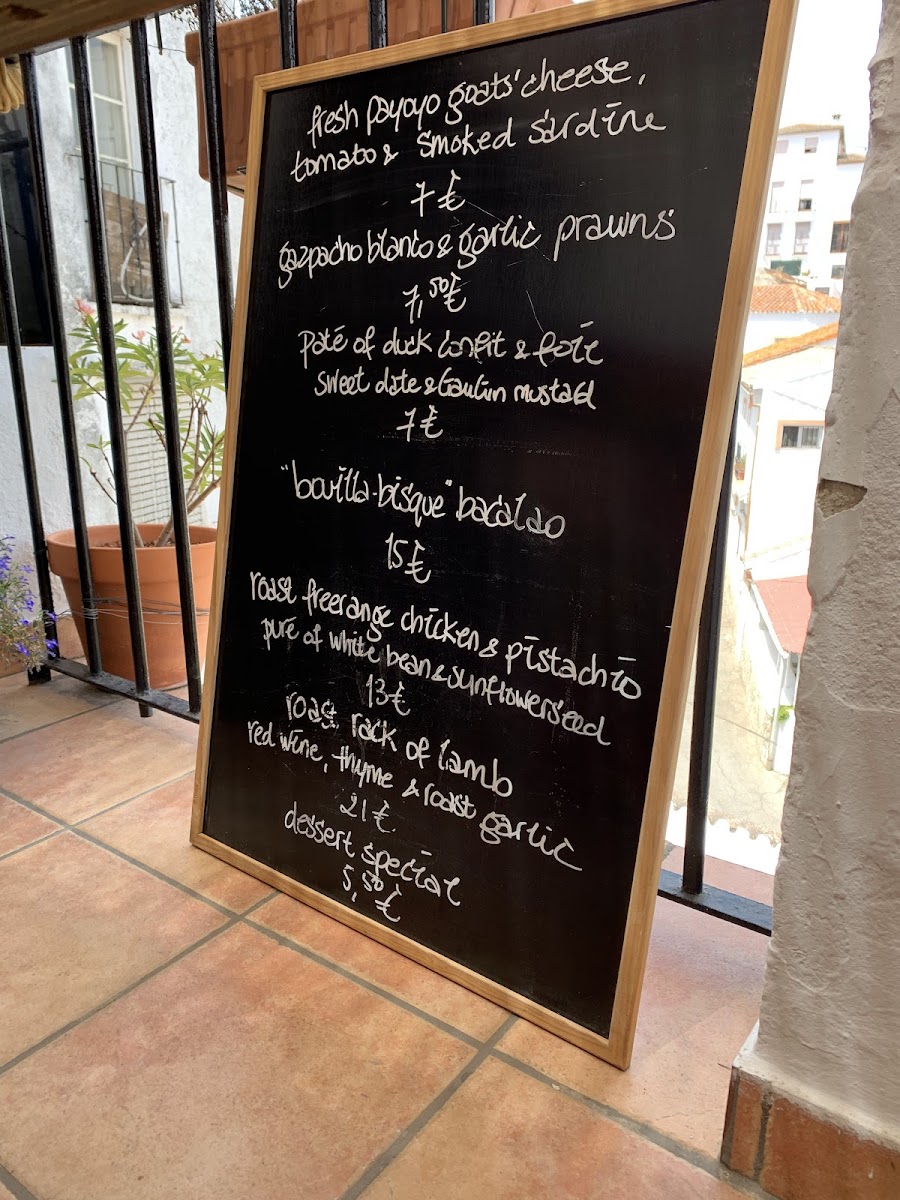 fresh payoyo goats' cheese,
tomato & smoked sardine
7 €
gazpacho blanco & garlic prawns
7,50 €
paté of duck confit & foie
sweet date & mustard
7 €
"bouilla-bisque" bacalao
15 €
roast freerange chicken & pistachio
puré of white bean & sunflowerseed
13 €
roast rack of lamb
red wine, thyme & roast garlic
21 €
dessert special
5,50 €